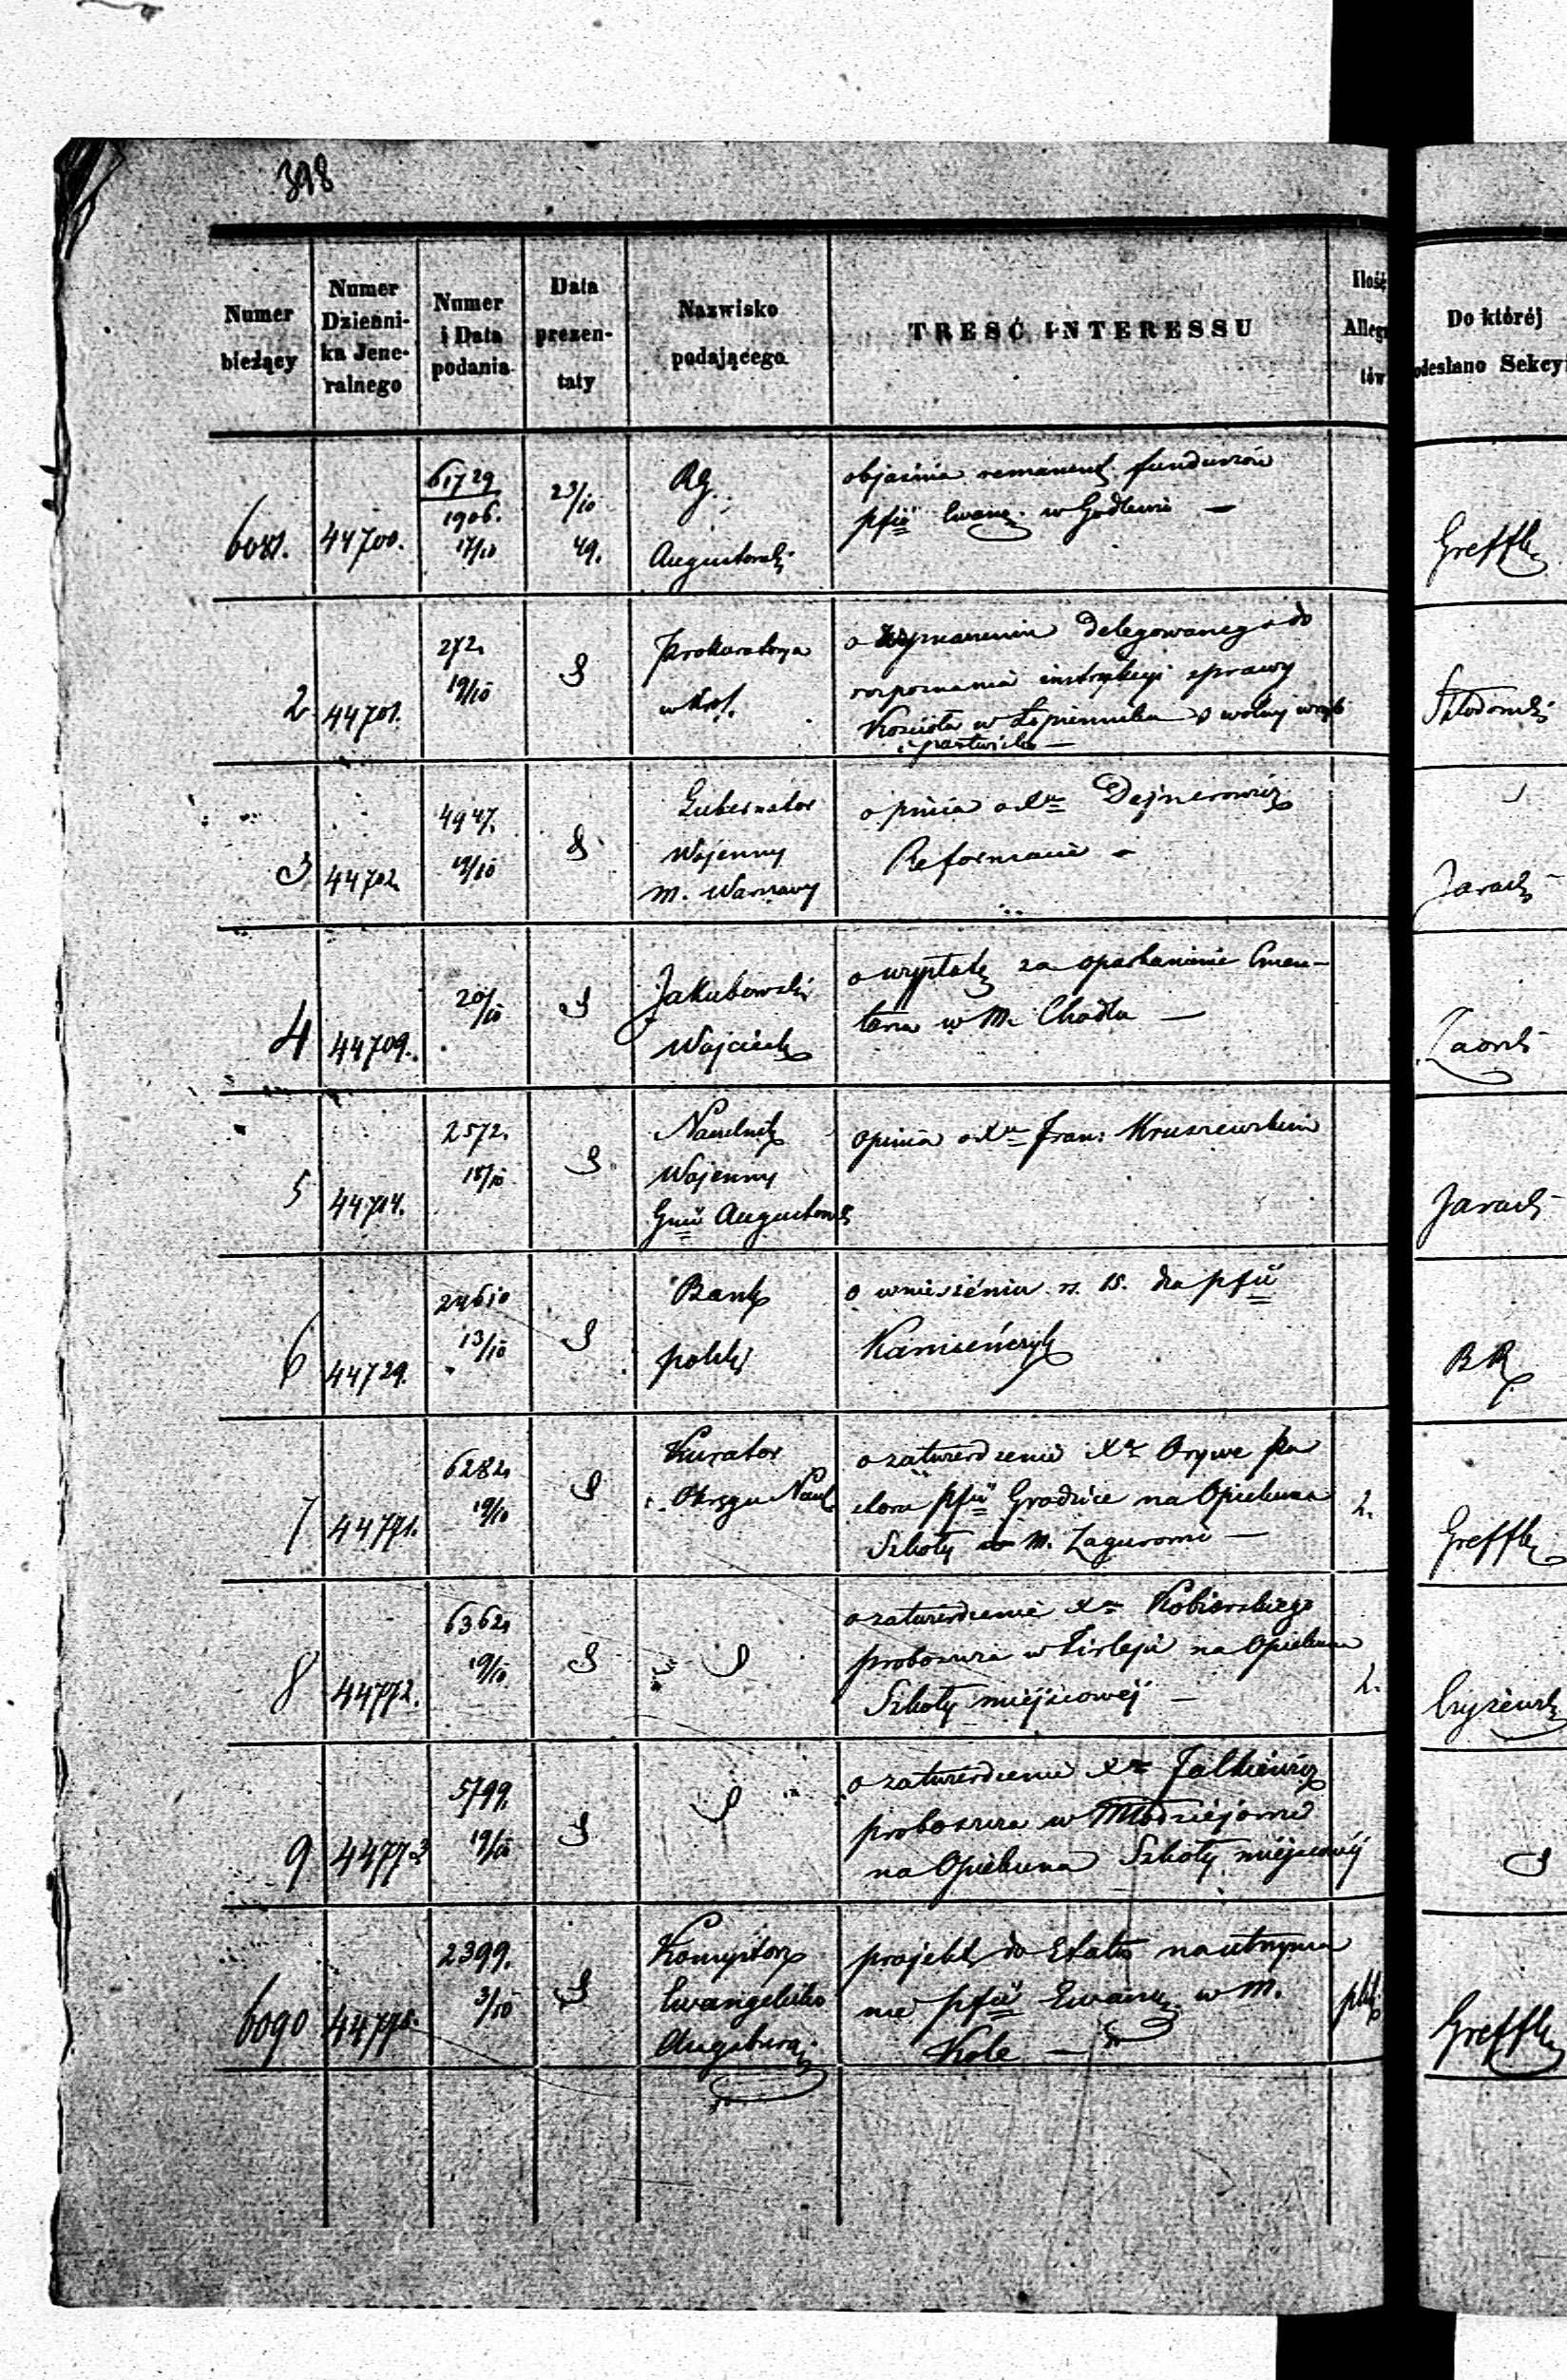 398
Numer bieżący
Numer Dzienni- ka Jene- ralnego
Numer i Data podania
Data prezen- taty
Nazwisko podającego
TRESĆ INTERESSU
Ilość Allega tów
Do któréj odesłano Sekcy
6081. 44700. 61729/1906. 17/10 23/10 49. RG. Augustowski
objaśnia remanent funduszów
pfii Ewang. w Godlewie —
Greffk
2 44701. 272. 19/10 Prokuratorya w Król.
o wyznaczenie delegowanego do
rozpoznania instrukcyi sprawy
Kościoła w Łopienniku o wolny wrąb
i pastwisko —
3 44702 4947. 19/10 Gubernator Wojenny m. Warszawy
opinia o Xu Dejnerowicz
Reformacie —
4 44709. 20/10 Jakubowski Wojciech
o wypłatę za oparkanienie Cmen-
tarza w M. Chodlu —
5 44714. 2572. 18/10 Naczelnik Wojenny Gnii Augustowsk
opinia o Xu Fran: Kruszewskim
6 44729. 24610 13/10 Bank polski
o wniesieniu rs. 15. dla pfii
Kamieńczyk
BR
7 44771. 6282. 19/10 Kurator Okręgu Nauk
o zatwierdzenie Xa
pfii Grodziec na Opiekuna
Szkoły w M. Zagurowie —
2.
Greffk
8 44772. 6362. 19/10
o zatwierdzenie Xa Kobierskiego
proboszcza w na Opiekuna
Szkoły miejscowéj —
2.
Czyżewsk
9 44773 5799. 19/10
o zatwierdzenie Xa Falkiewicz
proboszcza w Młodziejowie
na Opiekuna Szkoły miejscowéj
6090 44778. 2399. 3/10 Konsystorz Ewangelicko Augsburg.
projekt do Etatu na utrzyma
nie pfii Ewang. w M.
Kole —
Greffk